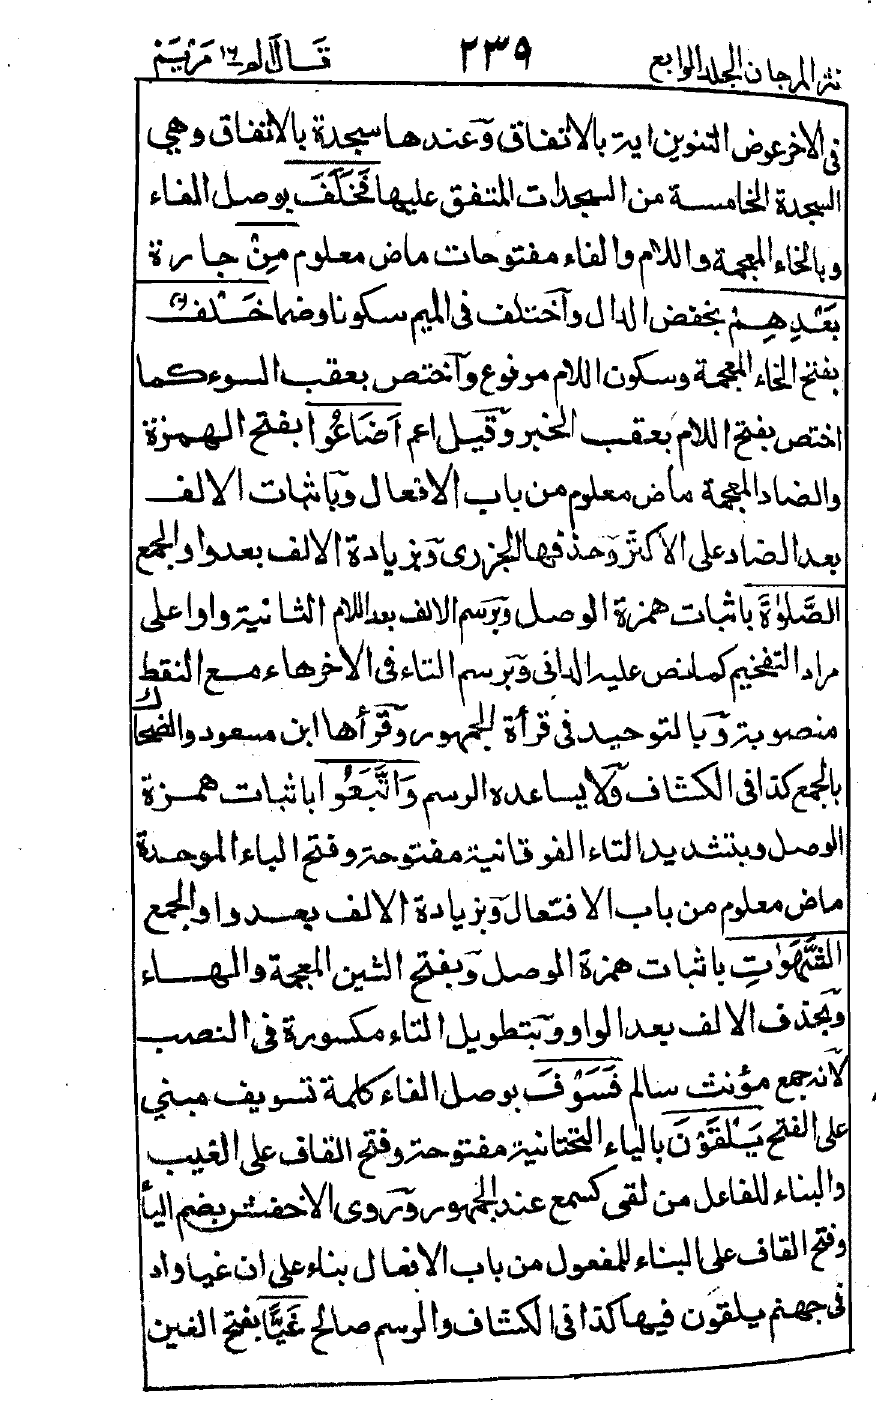 نثر المرجان الجلد الرابع ٢٣٩ قال الم ١٦ مريم
في الاخر عوض التنوين اية بالاتفاق وعندها سجدة بالاتفاق وهي
السجدة الخامسة من السجدات المتفق عليها فَخَلَفَ بوصل الفاء
وبالخاء المعجمة واللام والفاء مفتوحات ماض معلوم مِنْ جارة
بَعْدِهِمْ بخفض الدال واختلف في الميم سكونا وضما خَلْفٌ
بفتح الخاء المعجمة وسكون اللام مرفوع واختص بعقب السوء كما
اختص بفتح اللام بعقب الخير وقيل اعم اَضَاعُوا بفتح الهمزة
والضاد المعجمة ماض معلوم من باب الافعال وباثبات الالف
بعد الضاد على الاكثر وحذفها الجزرى وبزيادة الالف بعد واو الجمع
الصَّلٰوةَ باثبات همزة الوصل وبرسم الالف بعد اللام الثانية واوا على
مراد التفخيم كما نص عليه الدانى وبرسم التاء فى الاخرهاء مع النقط
منصوبة وبالتوحيد فى قرأة الجمهور وقرأها ابن مسعود والضحاك
بالجمع كذا فى الكشاف ولا يساعده الرسم وَاتَّبَعُوا باثبات همزة
الوصل وبتشديد التاء الفوقانية مفتوحة وفتح الباء الموحدة
ماض معلوم من باب الافتعال وبزيادة الالف بعد واو الجمع
الشَّهَوٰتِ باثبات همزة الوصل وبفتح الشين المعجمة والهاء
وبحذف الالف بعد الواو وبتطويل التاء مكسورة فى النصب
لانه جمع مؤنث سالم فَسَوْفَ بوصل الفاء كلمة تسويف مبني
على الفتح يَلْقَوْنَ بالياء التحتانية مفتوحة وفتح القاف على الغيب
والبناء للفاعل من لقى كسمع عند الجمهور وروى الاخفش بضم اليأ
وفتح القاف على البناء للمفعول من باب الافعال بناء على ان غيا واد
فى جهنم يلقون فيها كذا فى الكشاف والرسم صالح غَيًّا بفتح الغين